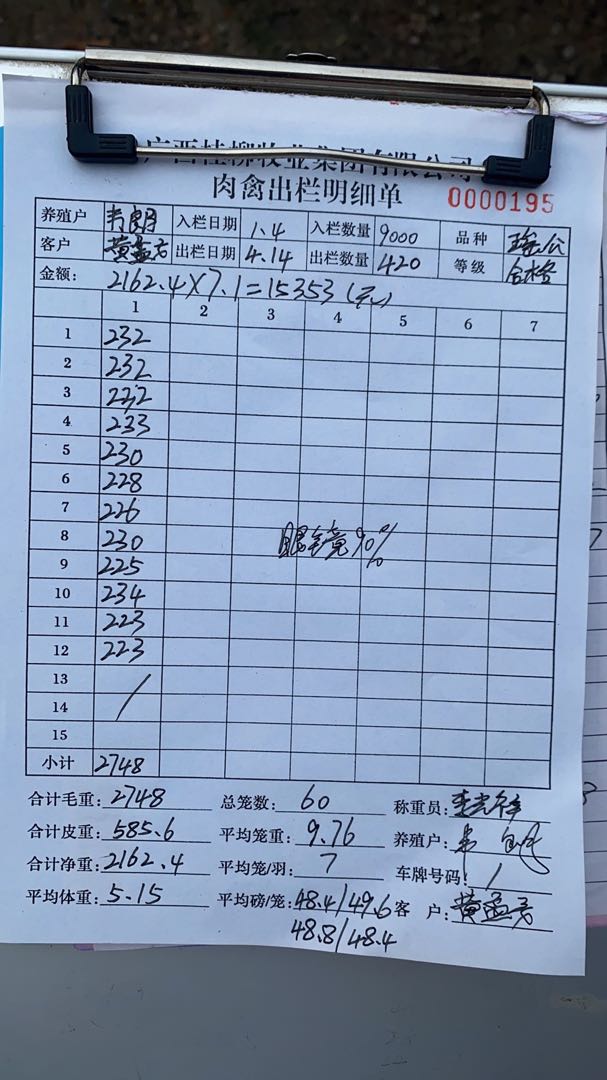 广西桂柳牧业集团有限公司
肉禽出栏明细单 0000195
养殖户 入栏日期 1.4 入栏数量 9000 品种
客户 黄孟 出栏日期 4.14 出栏数量 420 等级 合格
金额: 2162.4×7.1=15353(元)
1 2 3 4 5 6 7
1 232
2 232
3 232
4 233
5 230
6 228
7 226
8 230 眼镜90%
9 225
10 234
11 223
12 223
13
14 /
15
小计 2748
合计毛重: 2748 总笼数: 60 称重员:
合计皮重: 585.6 平均笼重: 9.76 养殖户:
合计净重: 2162.4 平均笼/羽: 7 车牌号码: /
平均体重: 5.15 平均磅/笼: 48.4/49.6 客 户: 黄孟
48.8/48.4